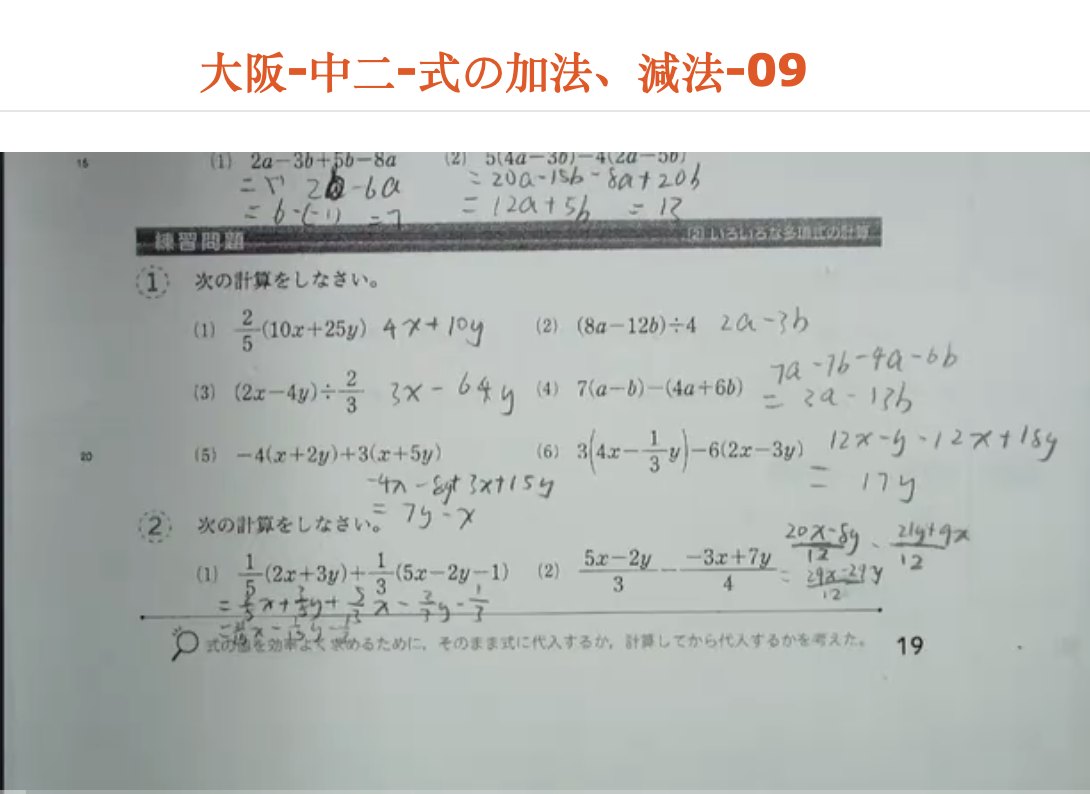 大阪-中二-式の加法、減法-09
15 (1) 2a－3b＋5b－8a (2) 5(4a－3b)－4(2a－5b)
= 2b-6a = 20a-15b-8a+20b
= 6-(-1) =7 = 12a+5b = 13
練習問題 [2] いろいろな多項式の計算
1 次の計算をしなさい。
(1) 2/5(10x＋25y) 4x+10y (2) (8a－12b)÷4 2a-3b
(3) (2x－4y)÷2/3 3x-64y (4) 7(a－b)－(4a＋6b) 7a-7b-4a-6b
= 3a-13b
20 (5) －4(x＋2y)＋3(x＋5y) (6) 3(4x－1/3y)－6(2x－3y) 12x-y-12x+18y
-4x-8y+3x+15y = 17y
= 7y-x
2 次の計算をしなさい。
(1) 1/5(2x＋3y)＋1/3(5x－2y－1) (2) 5x－2y/3－－3x＋7y/4 20x-8y/12 - 21y+9x/12
= 29x-29y/12
= 2/5x+3/5y+5/3x-2/3y-1/3
式の値を効率よく求めるために，そのまま式に代入するか，計算してから代入するかを考えた。 19